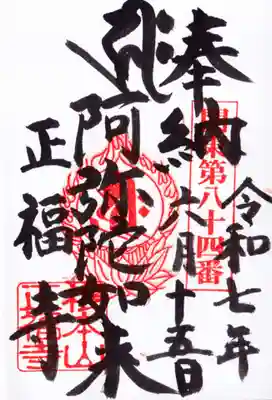 奉納
第八十四番
令和七年
六月十五日
阿弥陀如来
正福寺